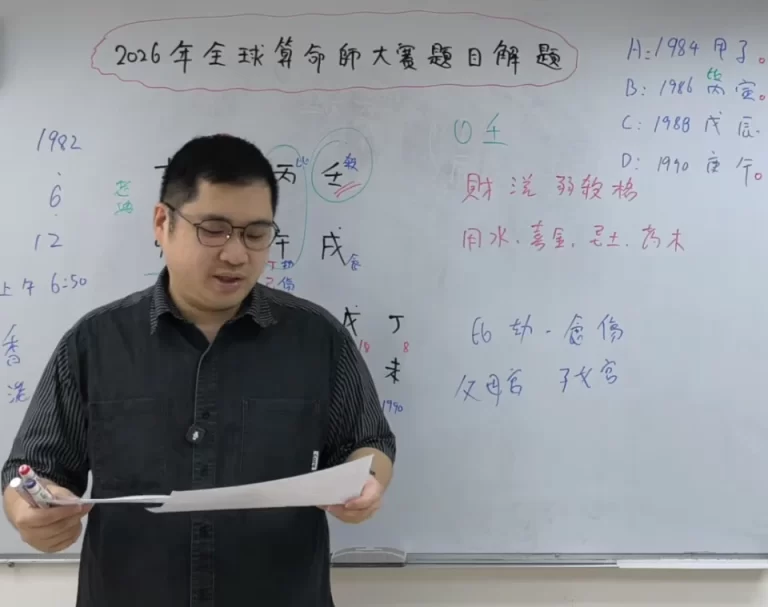 2026年全球算命師大賽題目解題
A:1984 甲子。
B: 1986 丙寅。
C: 1988 戊辰
D: 1990 庚午。
1982
.
6
.
12
上午 6:50
香
港
丙 比 壬 殺
午 戌 食
丁 劫
己 傷
戊 丁
18 8
未
1990
日 壬
財滋弱殺格
用水.喜金.忌土.
比劫-食傷
父母宮 子女宮